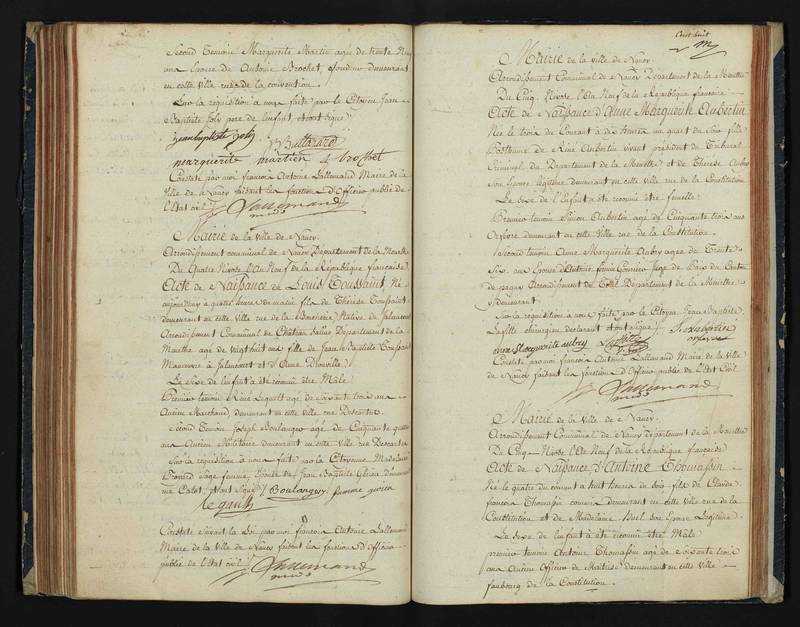 Second Temoin Marguerite Martin agée de trente
ans Epouse de Antoine Brochet, demeurant
en cette ville rue de la convention.
Sur la requisition a nous faite par le Citoyen Jean
Baptiste Joly pere de l'enfant, et ont signé
Jean baptiste Joly
marguerite martien f brochet
Constaté par moi françois Antoine Lallemand Maire de la
Ville de Nancy faisant les fonctions d'Officier public de
l'Etat civil
Lallemand
Mairie de la Ville de Nancy.
Arrondissement communal de Nancy Departement de la Meurthe
Du Quatre Nivose l'An Neuf de la République française
Acte de Naissance de Louis Toussaint, Né
aujourdhuy a quatre heures du matin fils de Thérèse Toussaint
demeurant en cette Ville rue de la Boucherie, Native de Jalaucourt
Arrondissement Communal de Château Salins Departement de la
Meurthe agé de vingt huit ans fille de Jean Baptiste Toussaint
Manœuvre à Jalaucourt et d'Anne
Le sexe de l'enfant a été reconnu être Mâle
Premier temoin René Legault agé de soixante trois ans
Ancien Marchand, demeurant en cette ville rue Descartes
Second Temoin Joseph Boulanger agé de Cinquante quatre
ans Ancien Militaire demeurant en cette Ville rue Descartes
Sur la requisition à nous faite par la Citoyenne Madelaine
Sage femme, Epouse de Jean Baptiste demeurant
rue et ont signé Boulanger femme
legault
Constaté suivant la Loi par moi francois Antoine Lallemand
Maire de la Ville de Nancy faisant les fonctions d'Officier
public de l'état civil
Lallemand
Cent huit
Mairie de la ville de Nancy
Arrondissement Communal de Nancy Departement de la Meurthe
Du Cinq Nivose l'An Neuf de la République française
Acte de Naissance d'Anne Marguerite Aubertin
Née le trois du Courant à heures un quart du soir fille
Posthume de René Aubertin vivant président du Tribunal
Criminel du Departement de la Meurthe, et de Thérèse Aubry
son Epouse légitime demeurant en cette ville rue de la Constitution
Le sexe de l'enfant a été reconnu être femelle
Premier temoin Simon Aubertin agé de Cinquante trois ans
Orfevre demeurant en cette Ville rue de la Constitution.
Second temoin Anne Marguerite Aubry agée de Trente
Six ans Epouse Juge de Paix du Canton
de pagny Arrondissement de Departement de la Meurthe
y demeurant
Sur la requisition à nous faite par le Citoyen Jean Baptiste
Lafitte chirurgien declarant et ont signé S. Aubertin
anne Marguerite aubry orfevre
Constaté par moi françois Antoine Lallemand Maire de la Ville
de Nancy faisant les fonctions d'Officier public de l'Etat Civil
Lallemand
Mairie de la Ville de Nancy.
Arrondissement Communal de Nancy Departement de la Meurthe
Du Cinq Nivose l'An Neuf de la République française
Acte de Naissance d'Antoine Thomassin
Né le quatre du courant a huit heures du soir fils de Claude
françois Thomassin commis demeurant en cette Ville rue de la
Constitution et de Madelaine son Epouse Légitime
Le sexe de l'enfant a été reconnu être Mâle
premier temoin Antoine Thomassin agé de soixante trois
ans Ancien Officier de Maitrise demeurant en cette Ville
faubourg de la Constitution